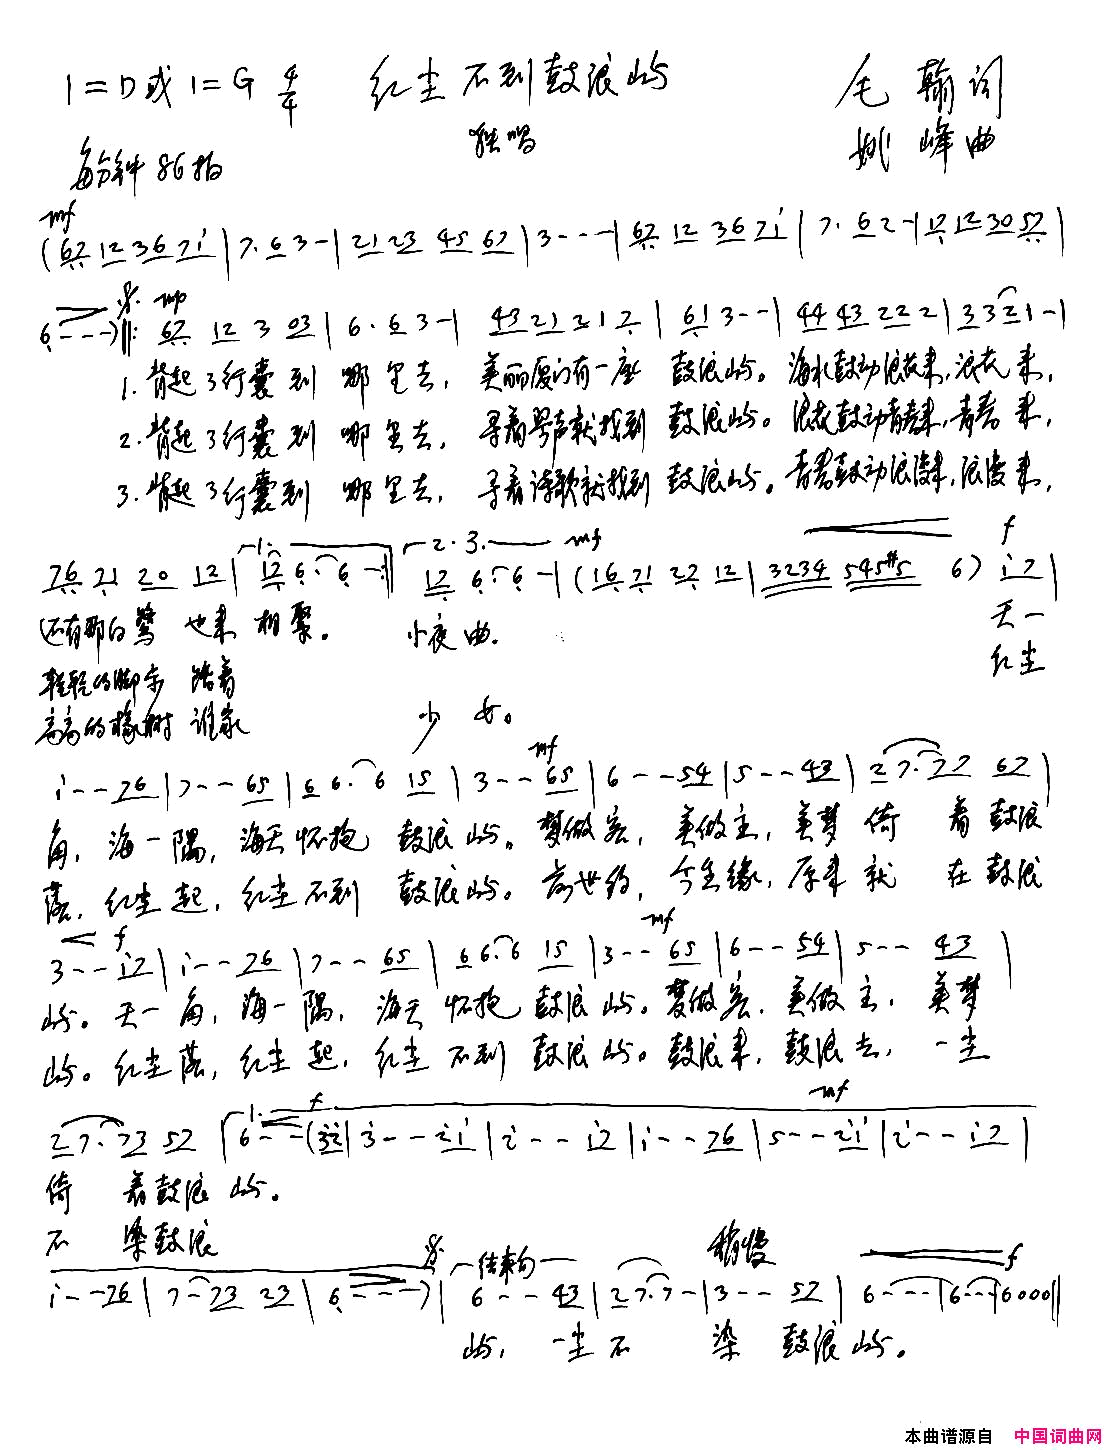 1=D或1=G 4/4 红尘不到鼓浪屿 毛翰词
独唱 姚峰曲
每分钟86拍
mf
(67 12 36 71|7·63-|21 23 45 67|3---|67 12 36 71|7·62-|17 12 30 57|
mp
6---)‖: 67 12 3 03|6·63-| 43 21 21 7|61 3--|44 43 22 2|33 21-|
1.背起了行囊到哪里去,美丽厦门有一座鼓浪屿。海水鼓动浪花来,浪花来,
2.背起了行囊到哪里去,寻着琴声就找到鼓浪屿。浪花鼓动青春来,青春来,
3.背起了行囊到哪里去,寻着诗歌就找到鼓浪屿。青春鼓动浪漫来,浪漫来,
1. 2.3. mf f
76 71 20 12|17 6·6-‖ 17 6·6-|(16 71 27 12|3234 545#5 6) i7|
还有那白鹭也来相聚。 小夜曲. 天一
轻轻的脚步踏着 红尘
高高的橡树谁家 少女。
mf
i--76|7--65|66·6 15|3--65|6--54|5--43|27·77 67|
角,海一隅,海天怀抱鼓浪屿。梦做客,美做主,美梦倚着鼓浪
落,红尘起,红尘不到鼓浪屿。前世约,今生缘,原来就在鼓浪
f mf
3--i7|i--76|7--65|66·6 15|3--65|6--54|5--43|
屿。天一角,海一隅,海天怀抱鼓浪屿。梦做客,美做主,美梦
屿。红尘落,红尘起,红尘不到鼓浪屿。鼓浪来,鼓浪去,一尘
1. f mf
27·73 57 6--(32|3--21|2--i7|i--76|5--21|2--i7|
倚着鼓浪屿。
不染鼓浪
结束句 稍慢 f
i--76|7-73 23|6---)|6--43|27·7-|3--57|6---|6---|6000‖
屿,一尘不染鼓浪屿。
本曲谱源自 中国词曲网